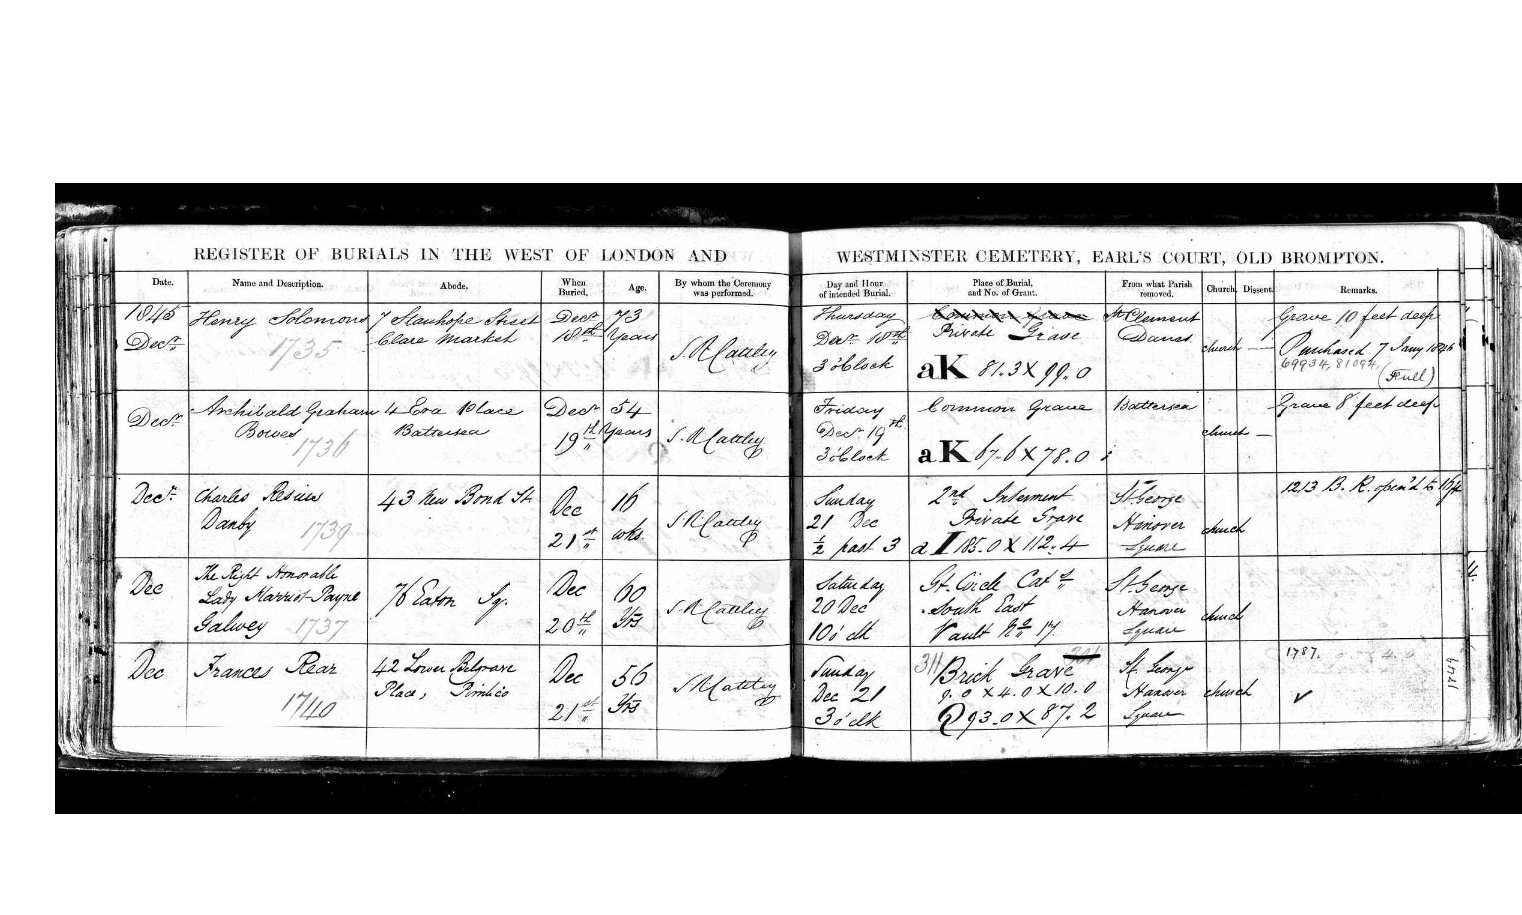 REGISTER OF BURIALS IN THE WEST OF LONDON AND WESTMINSTER CEMETERY, EARL'S COURT, OLD BROMPTON.
Date. Name and Description. Abode. When Buried. Age. By whom the Ceremony was performed. Day and Hour of intended Burial. Place of Burial, and No. of Grant. From what Parish removed. Church. Dissent. Remarks.
1845
Decr
Henry Solomons
1735
7 Stanhope Street
Clare Market
Decr
18th
73
Years
S. R. Cattley
Thursday
Decr 18th
3 o'Clock
Common Grave
Private Grave
aK 81.3 X 99.0
St Clement
Danes
church —
Grave 10 feet deep
Purchased 7 Jany 1846
69934, 81094
(Full)
Decr
Archibald Graham
Bowes
1736
4 Eva Place
Battersea
Decr
19th
54
Years
S. R. Cattley
Friday
Decr 19th
3 o'Clock
Common Grave
aK 67.6 X 78.0
Battersea
church —
Grave 8 feet deep
Decr
Charles
Danby
1739
43 New Bond St.
Dec
21st
16
wks.
S R Cattley
Sunday
21 Dec
½ past 3
2nd Interment
Private Grave
a I 185.0 X 112.4
St. George
Hanover
Square
church
1213 B. R. open'd to
Dec
The Right Honorable
Lady Harriot Payne
Galwey 1737
76 Eaton Sq.
Dec
20th
60
Yrs
S R Cattley
Saturday
20 Dec
10 o' clk
Gt. Circle Cat
South East
Vault No 17.
St. George
Hanover
Square
church
Dec
Frances Rear
1740
42 Lower Belgrave
Place, Pimlico
Dec
21st
56
Yrs
S R Cattley
Sunday
Dec 21
3 o' clk
311 Brick Grave
9.0 X 4.0 X 10.0
Q 93.0 X 87.2
St. George
Hanover
Square
church
1787.
✓